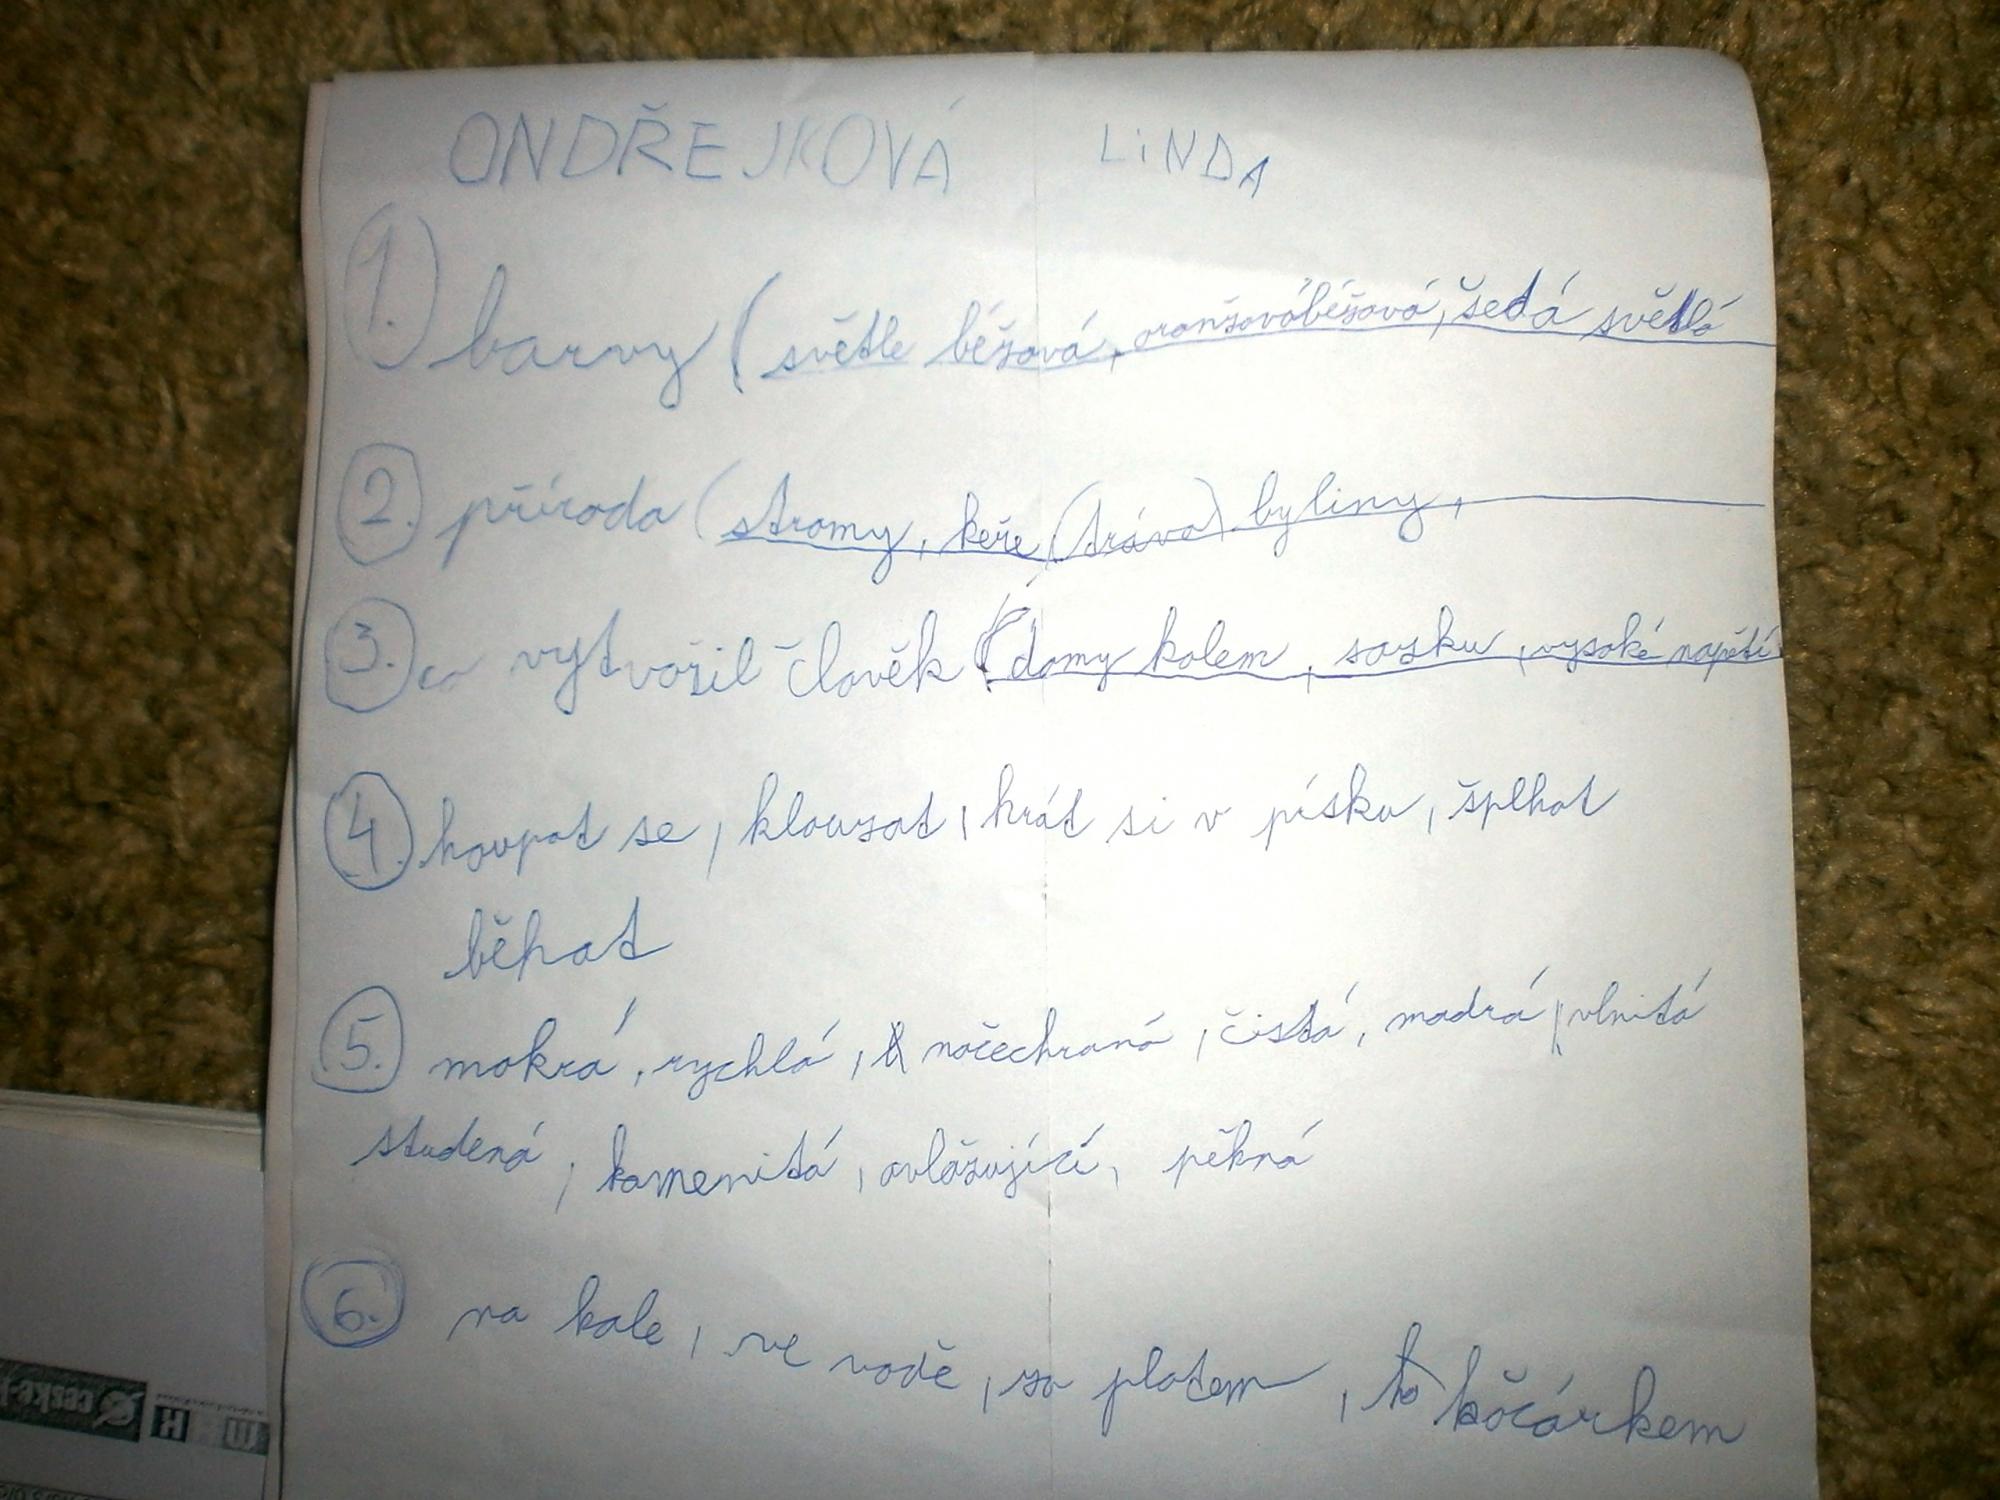 ONDŘEJKOVÁ LiNDA
1. barvy (světle béžová, oranžovábéžová, šedá světlá
2. příroda (stromy, keře (tráva) byliny,
3. co vytvořil člověk (domy kolem, sosku, vysoké napětí
4. houpat se, klouzat, hrát si v písku, šplhat
běhat
5. mokrá, rychlá, načechraná, čistá, modrá, vlnitá
studená, kamenitá, ovlažující, pěkná
6. na kole, ve vodě, za platem, kočárkem